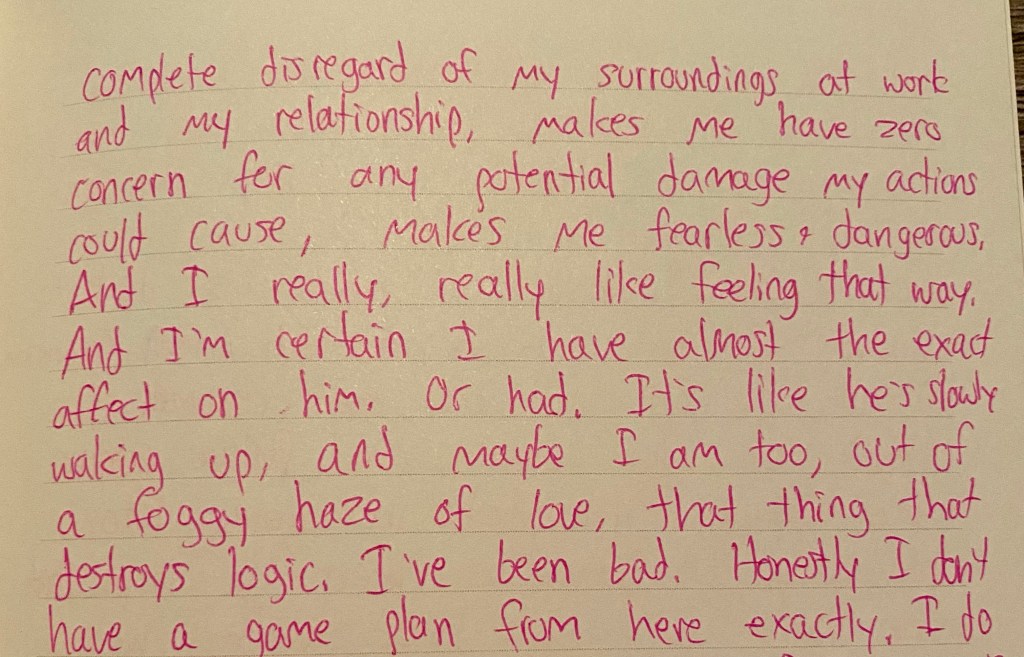 complete disregard of my surroundings at work
and my relationship, makes me have zero
concern for any potential damage my actions
could cause, makes me fearless & dangerous,
And I really, really like feeling that way.
And I'm certain I have almost the exact
affect on him. Or had. It's like he's slowly
waking up, and maybe I am too, out of
a foggy haze of love, that thing that
destroys logic. I've been bad. Honestly I don't
have a game plan from here exactly. I do